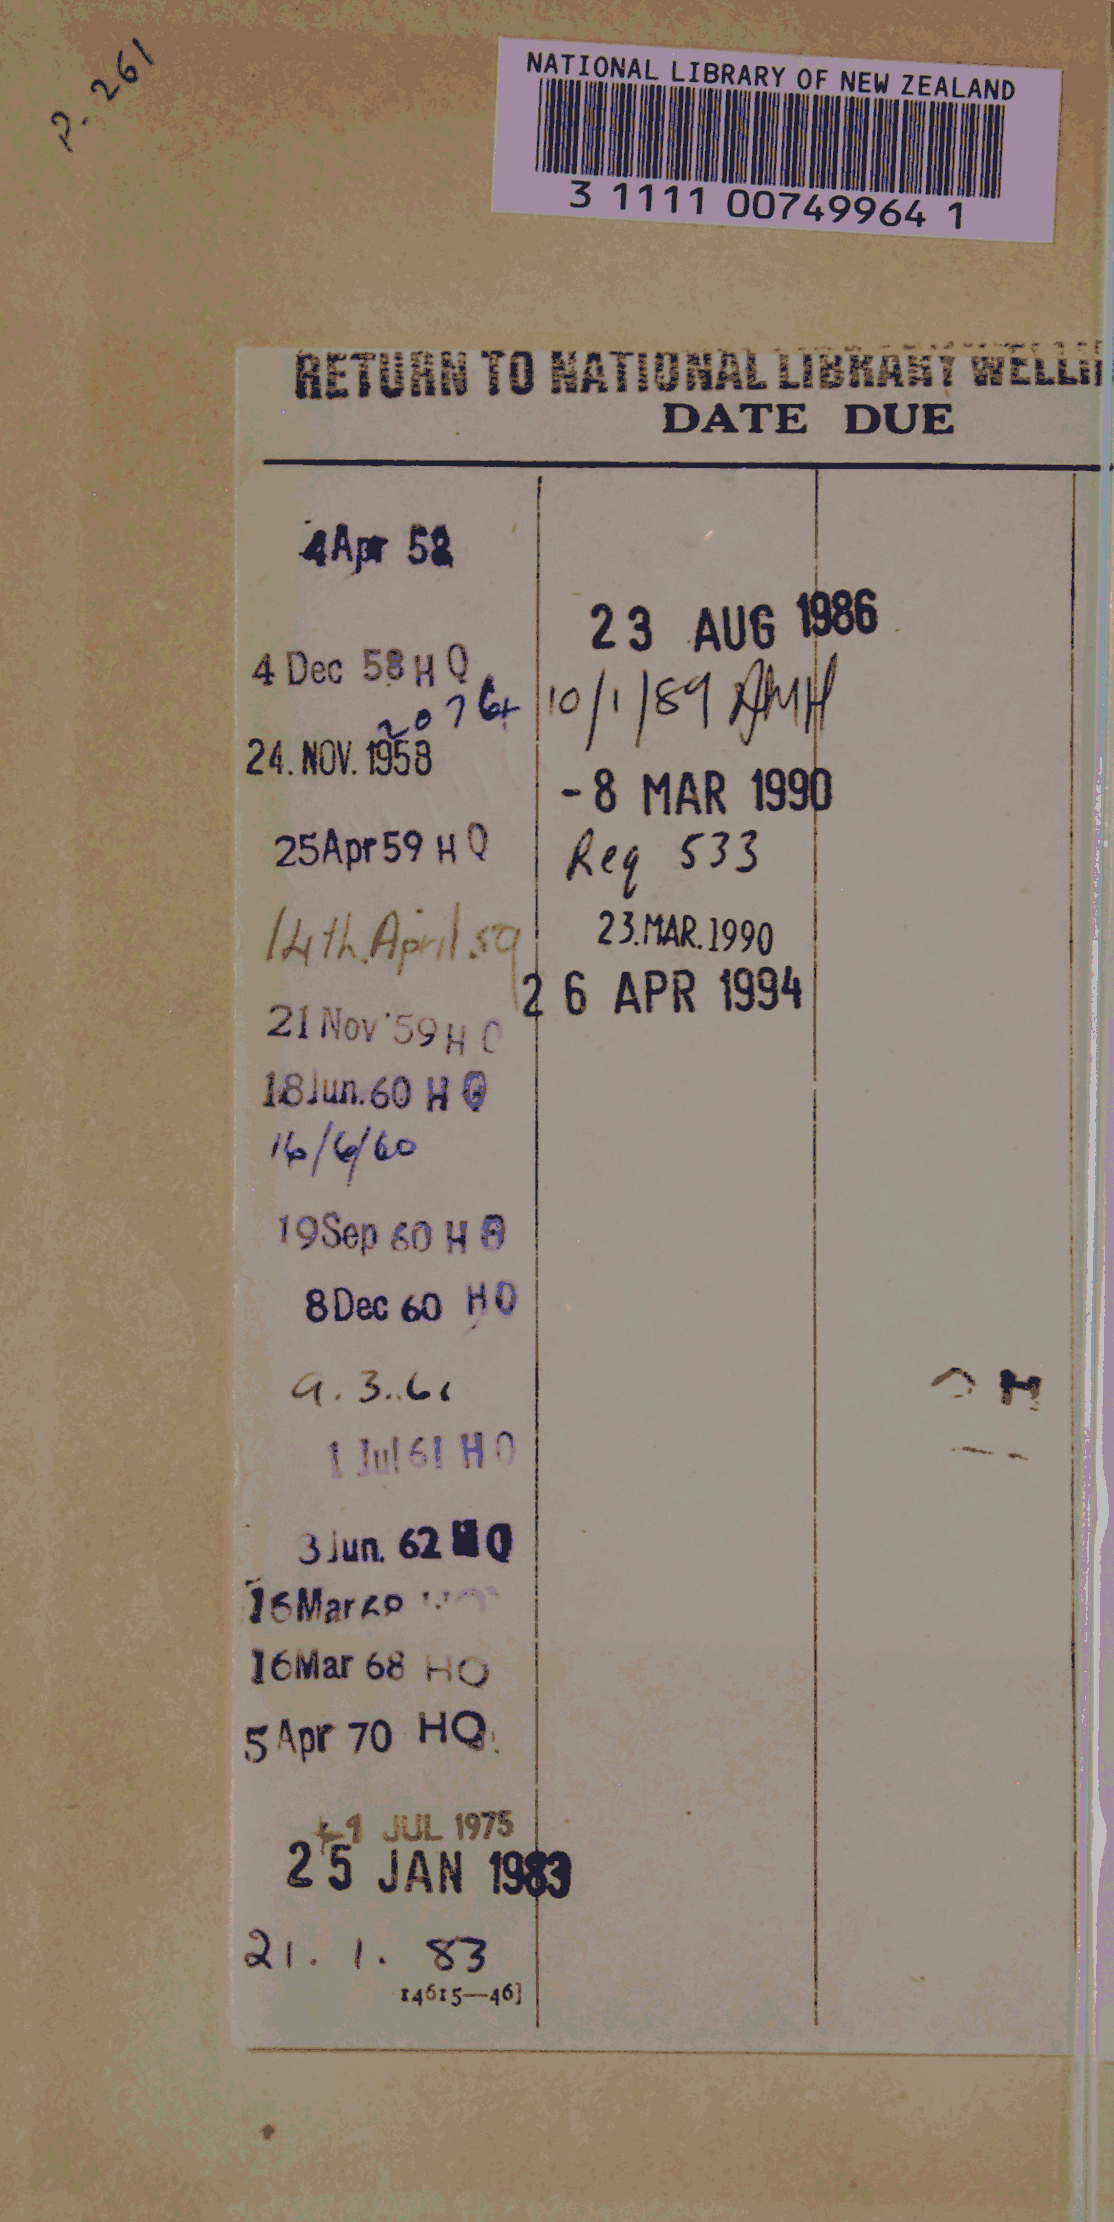 P. 261
NATIONAL LIBRARY OF NEW ZEALAND
3 1111 00749964 1
RETURN TO NATIONAL LIBRARY
DATE DUE
4 Apr 52
4 Dec 58 H Q
2076
24. NOV. 1958
25 Apr 59 H Q
14th. April. 59
21 Nov 59 H
18 Jun. 60 H Q
16/6/60
19 Sep 60 H Q
8 Dec 60 HQ
9.3..61
1 Jul 61 HQ
3 Jun. 62 HQ
16 Mar
16 Mar 68 HQ
5 Apr 70 HQ
1 JUL 1975
25 JAN 1983
21. 1. 83
14615—46]
23 AUG 1986
10/1/89 AMH
-8 MAR 1990
Req 533
23.MAR.1990
26 APR 1994